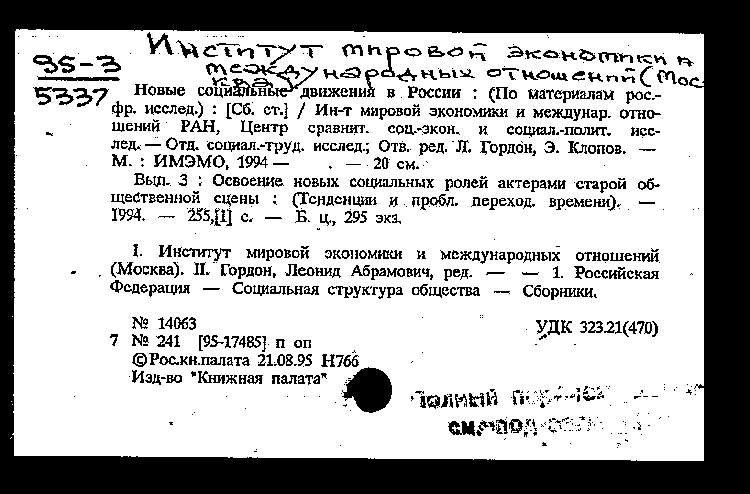 Институт мировой экономики и
95-3
международных отношений (Мос-
ква)
5337
Новые социальные движения в России : (По материалам рос.-
фр. исслед.) : [Сб. ст.] / Ин-т мировой экономики и междунар. отно-
шений РАН, Центр сравнит. соц.-экон. и социал.-полит. исс-
лед. — Отд. социал.-труд. исслед.; Отв. ред. Л. Гордон, Э. Клопов. —
М. : ИМЭМО, 1994 — . — 20 см.
Вып. 3 : Освоение новых социальных ролей актерами старой об-
щественной сцены : (Тенденции и пробл. переход. времени). —
1994. — 255,[1] с. — Б. ц., 295 экз.
I. Институт мировой экономики и международных отношений
(Москва). II. Гордон, Леонид Абрамович, ред. — — 1. Российская
Федерация — Социальная структура общества — Сборники.
№ 14063
УДК 323.21(470)
7 № 241 [95-17485] п оп
©Рос.кн.палата 21.08.95 Н766
Изд-во "Книжная палата"
ПОЛНЫЙ
СМ. ПОД